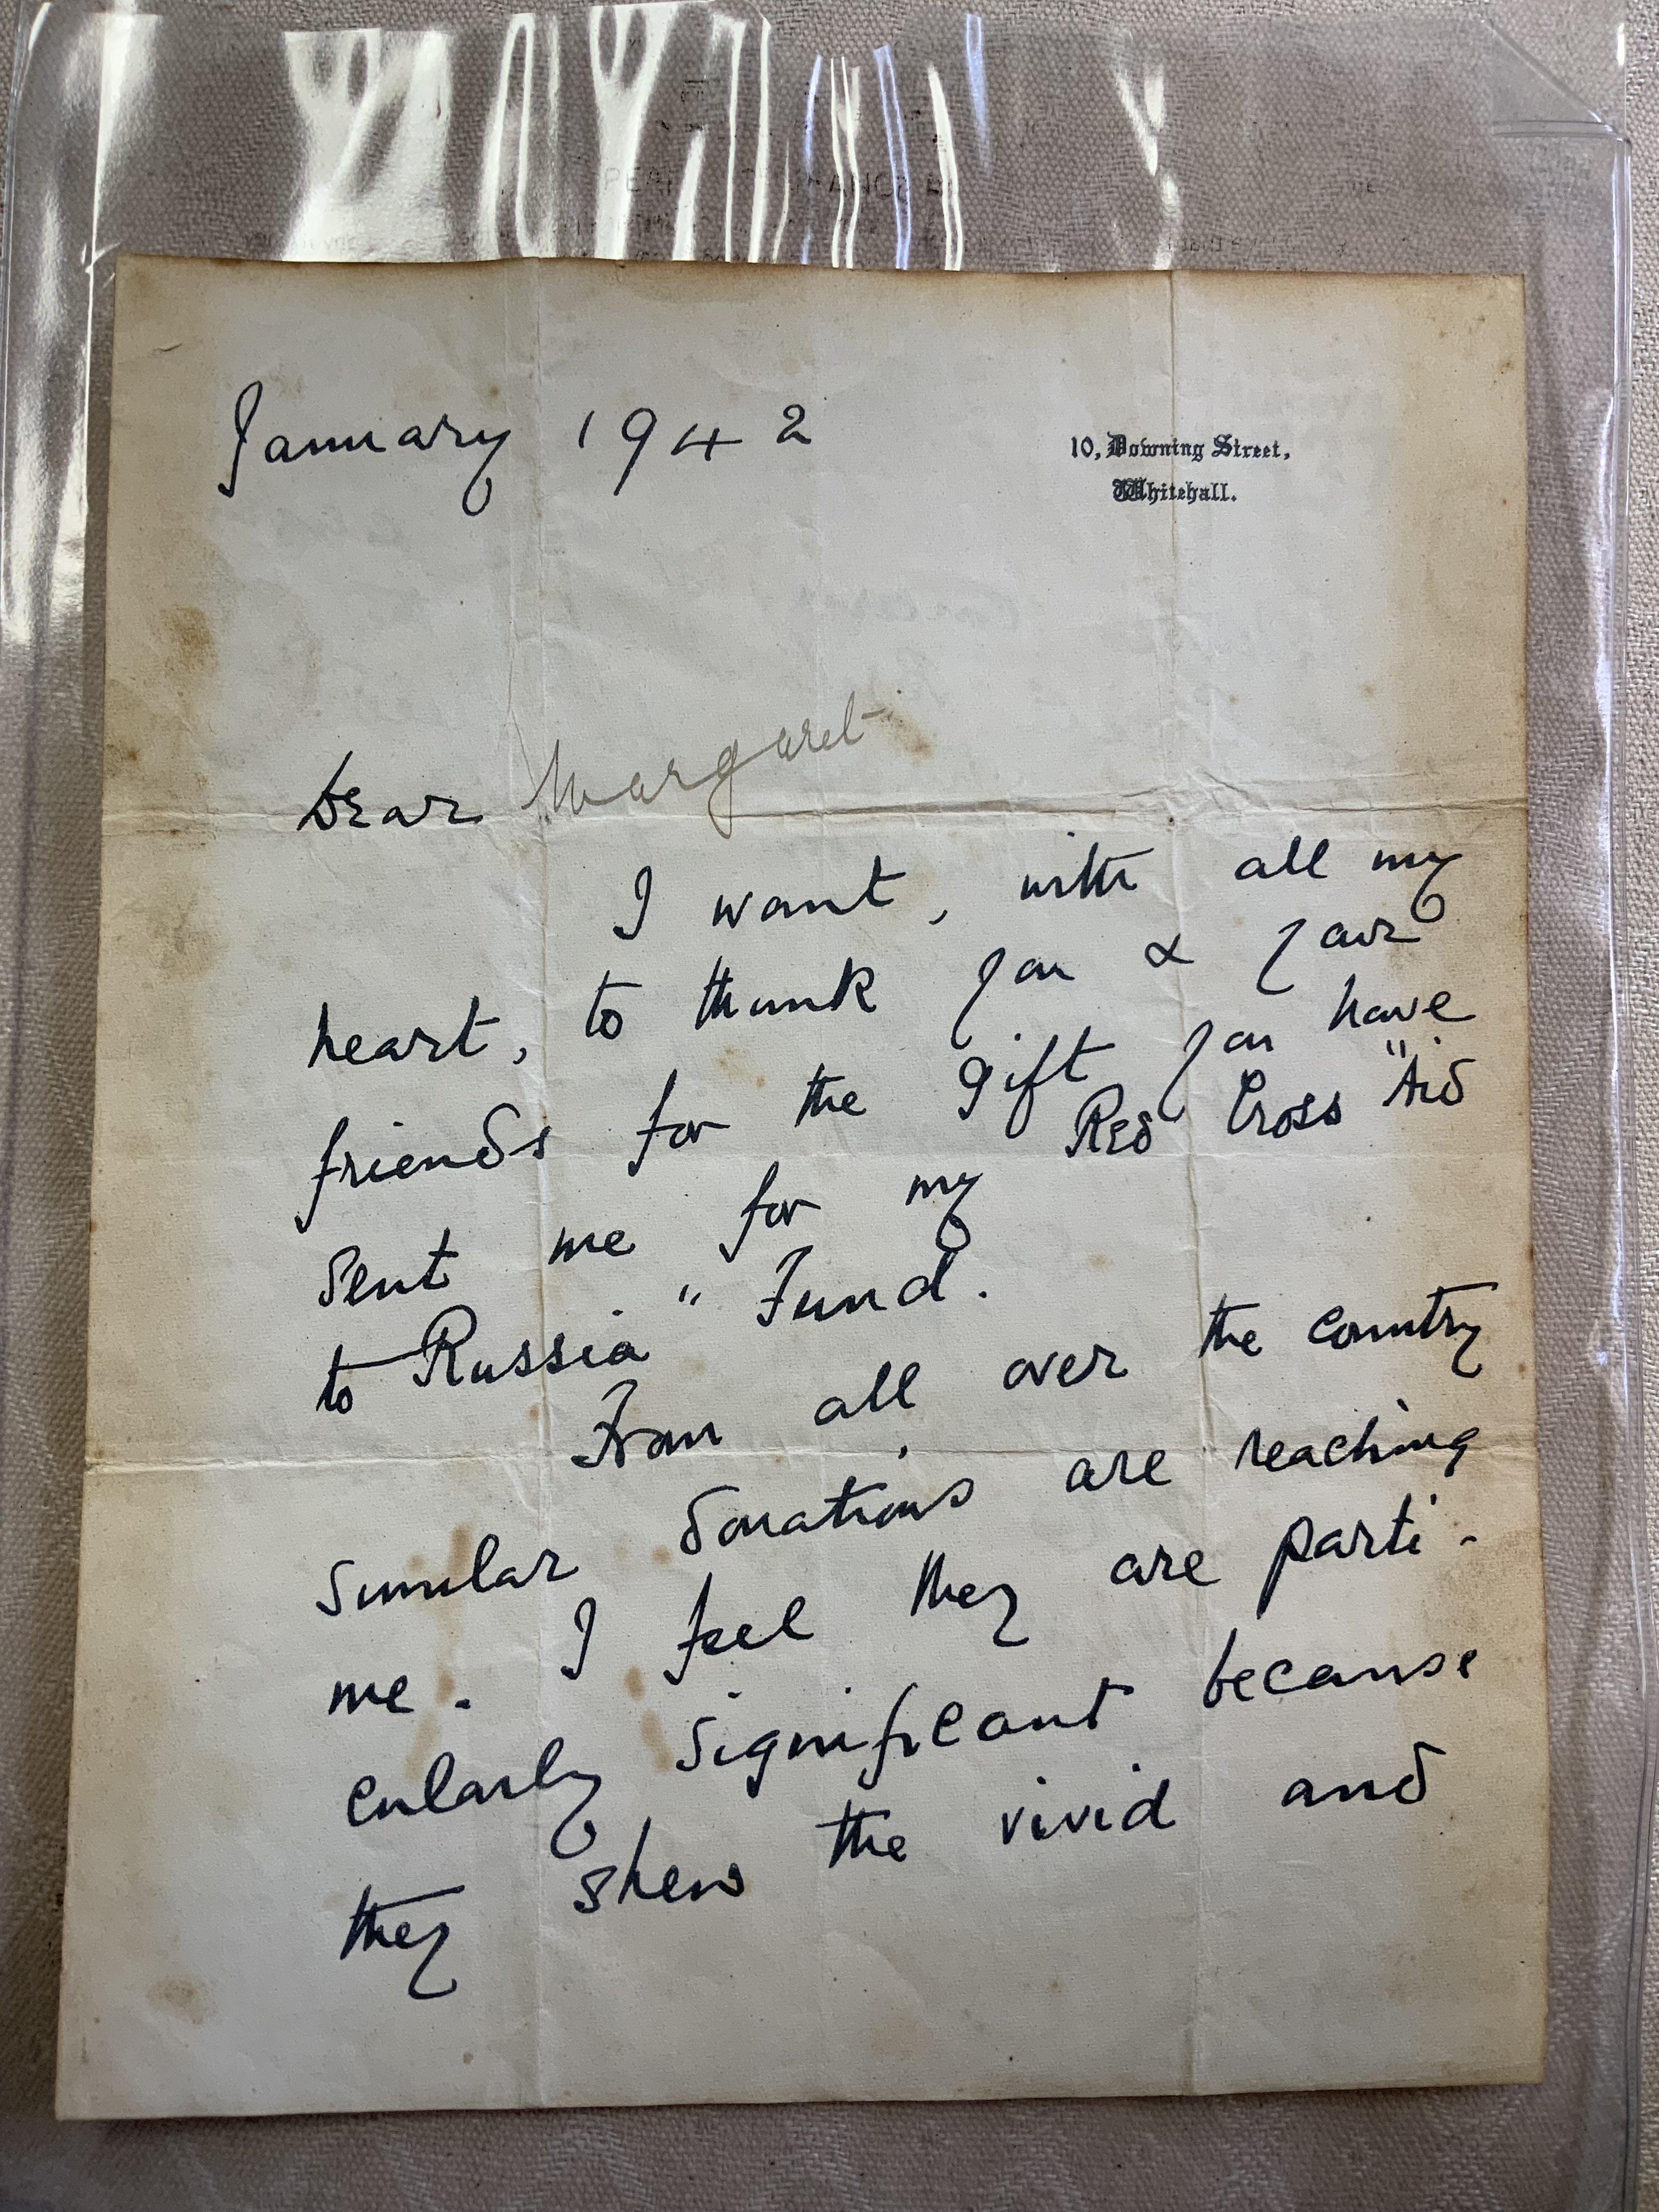 January 1942
10, Downing Street,
Whitehall.
Dear Margaret
I want, with all my
heart, to thank you & your
friends for the gift you have
sent me for my Red Cross "Aid
to Russia" Fund.
From all over the country
similar donations are reaching
me. I feel they are parti-
cularly significant because
they shew the vivid and